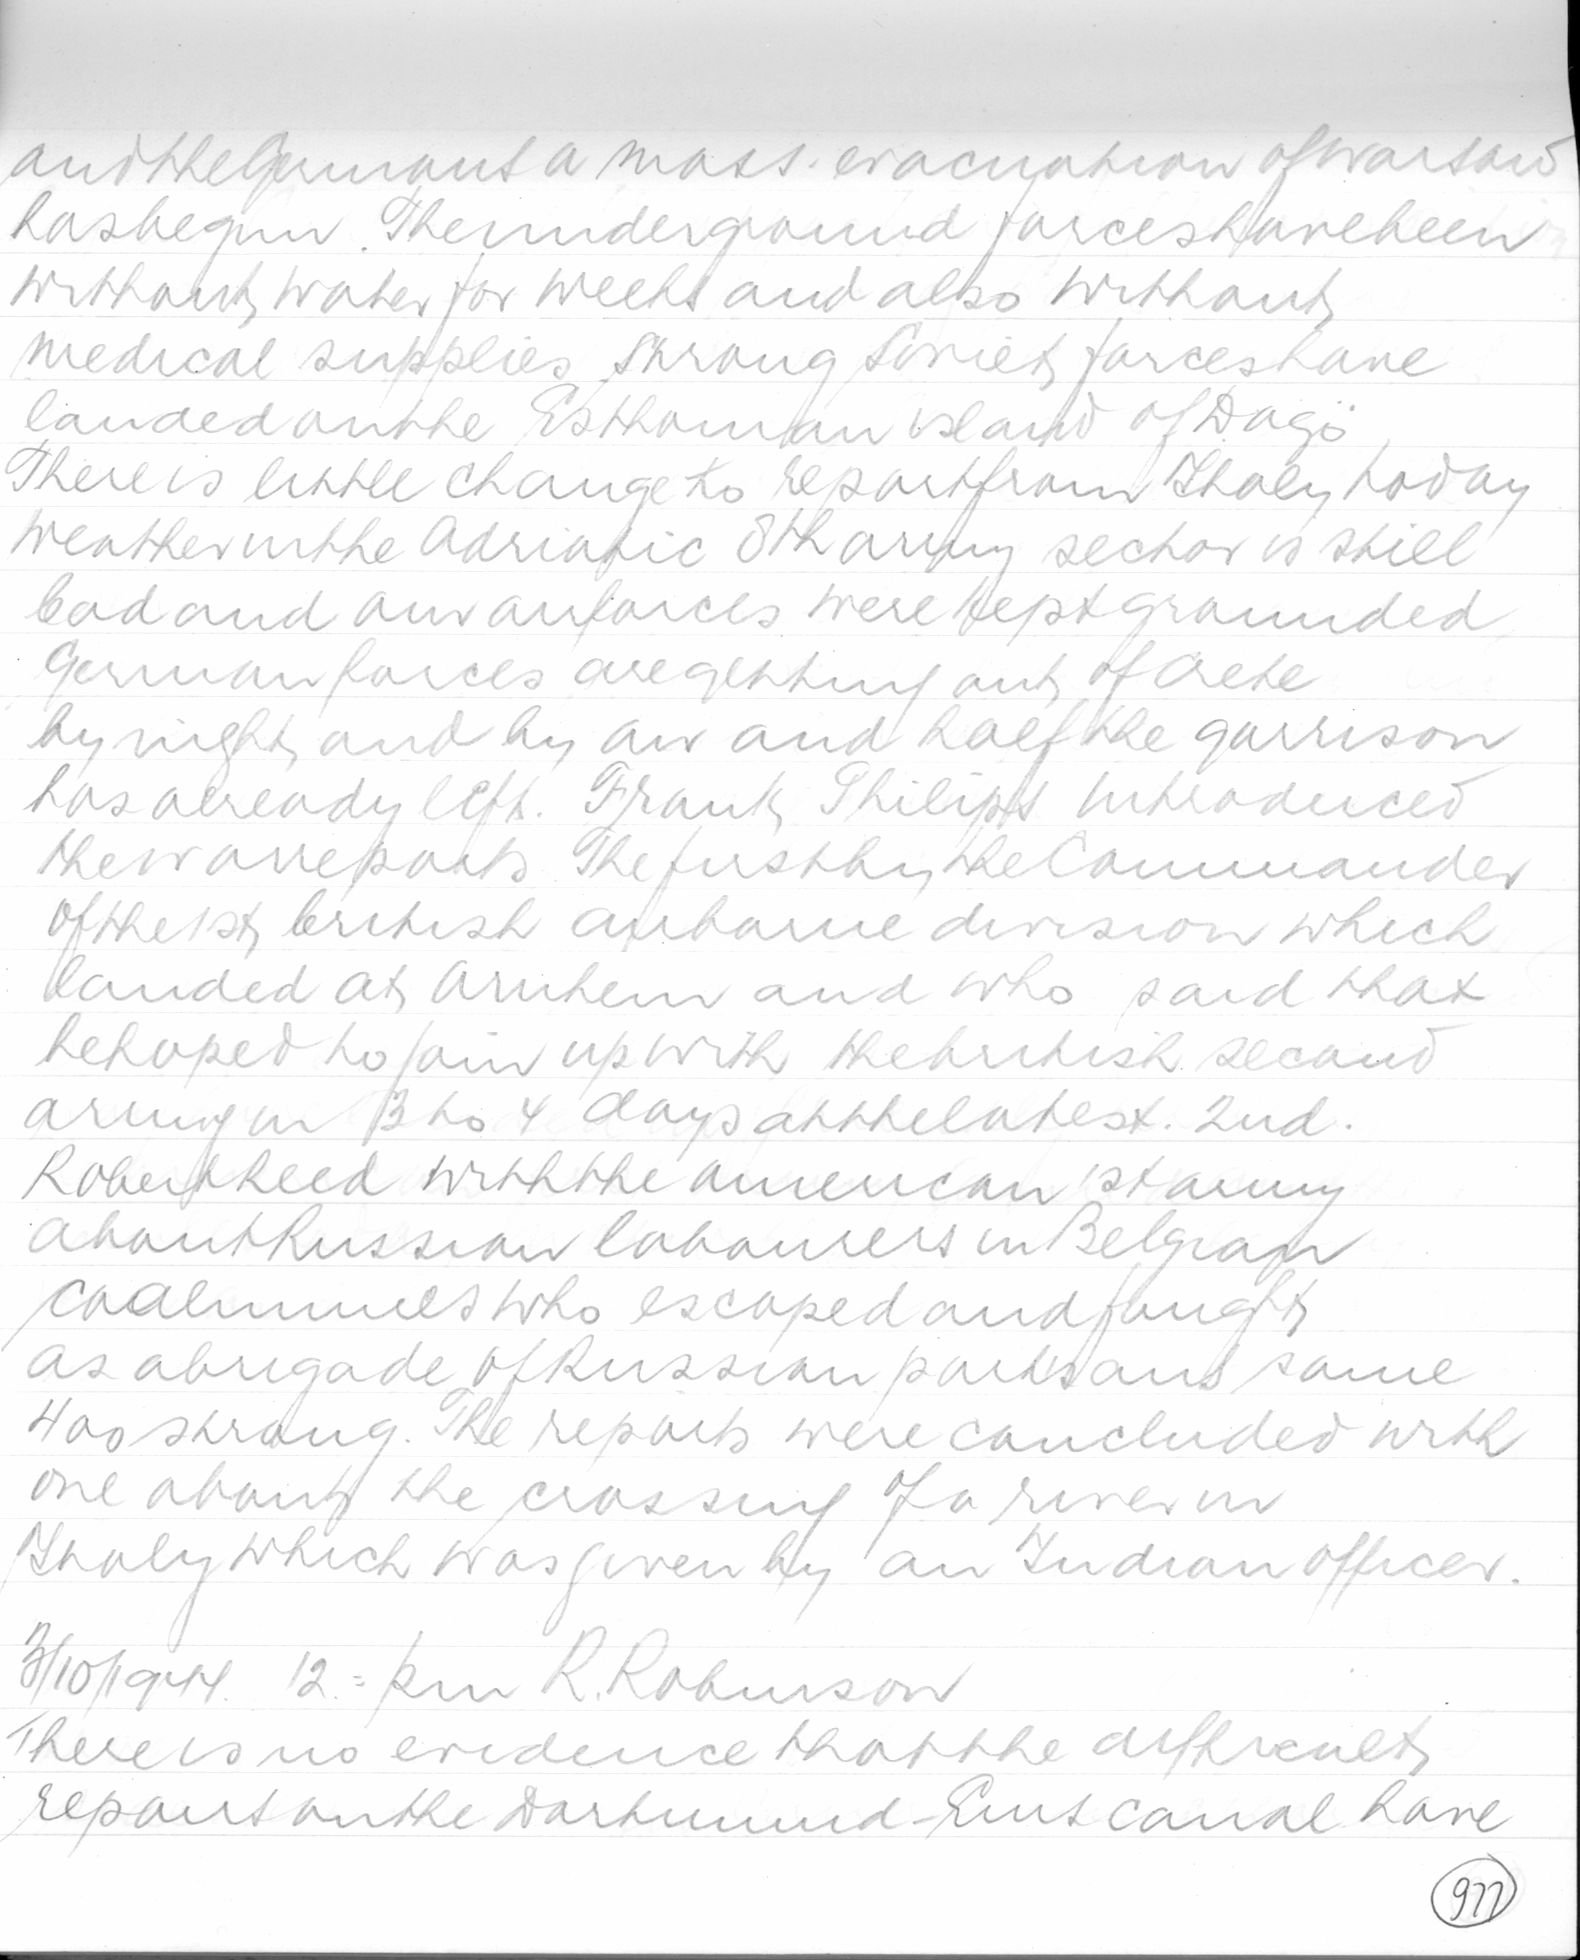 and the Germans a mass evacuation of Warsaw
has begun. The underground forces have been
without water for weeks and also without
medical supplies. Strong Soviet forces have
landed on the Esthonian island of Dagö.
There is little change to report from Italy today
Weather in the Adriatic 8th army sector is still
bad and our airforces were kept grounded
German forces are getting out of Crete
by night and by air and half the garrison
has already left. Frank Philips introduced
the warreports. The first by the Commander
of the 1st british airborne division which
landed at Arnhem and who said that
he hoped to join up with the british second
army in 3 to 4 days at the latest. 2nd.
Robert Reed with the american 1st army
about Russian labourers in Belgian
coalmines who escaped and fought
as a brigade of Russian partisans some
400 strong. The reports were concluded with
one about the crossing of a river in
Italy which was given by an Indian officer.
3/10/1944. 12.= pm R. Robinson
There is no evidence that the difficult
repairs on the Dortmund-Ems canal have
977